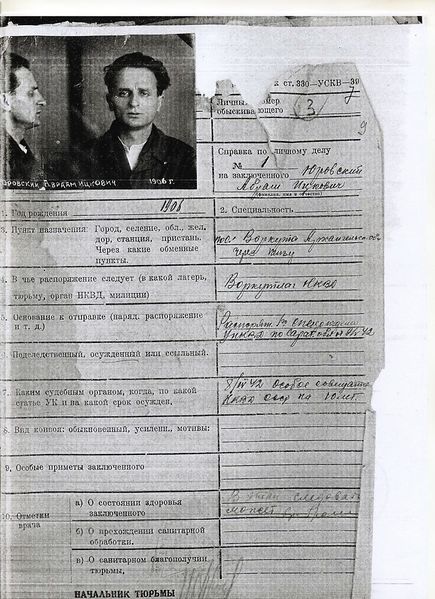 к ст. 330—УСКВ—39
7
Личный номер
обыскивающего
3
9
Справка по личному делу
№ 1
на заключенного Юровский
Абрам Ицкович
(фамилия, имя и отчество)
ЮРОВСКИЙ АВРДАМ ИЦКОВИЧ 1906 г.
1. Год рождения 1906
2. Специальность.
3. Пункт назначения: Город, селение, обл., жел.
дор, станция, пристань.
Через какие обменные
пункты.
пос. Воркута Архангельской
через
4. В чье распоряжение следует (в какой лагерь,
тюрьму, орган НКВД, милиции)
Воркутлаг НКВД
5. Основание к отправке (наряд, распоряжение
и т. д.)
УНКВД по Саратовской 42
6. Подследственный, осужденный или ссыльный.
7. Каким судебным органом, когда, по какой
статье УК и на какой срок осужден,
42 Особое совещание
НКВД СССР на 10 лет
8. Вид конвоя: обыкновенный, усилени., мотивы:
9. Особые приметы заключенного
10. Отметки
врача
а) О состоянии здоровья
заключенного
следовать
может
б) О прехождении санитарной
обработки.
в) О санитарном благополучии
тюрьмы,
НАЧАЛЬНИК ТЮРЬМЫ